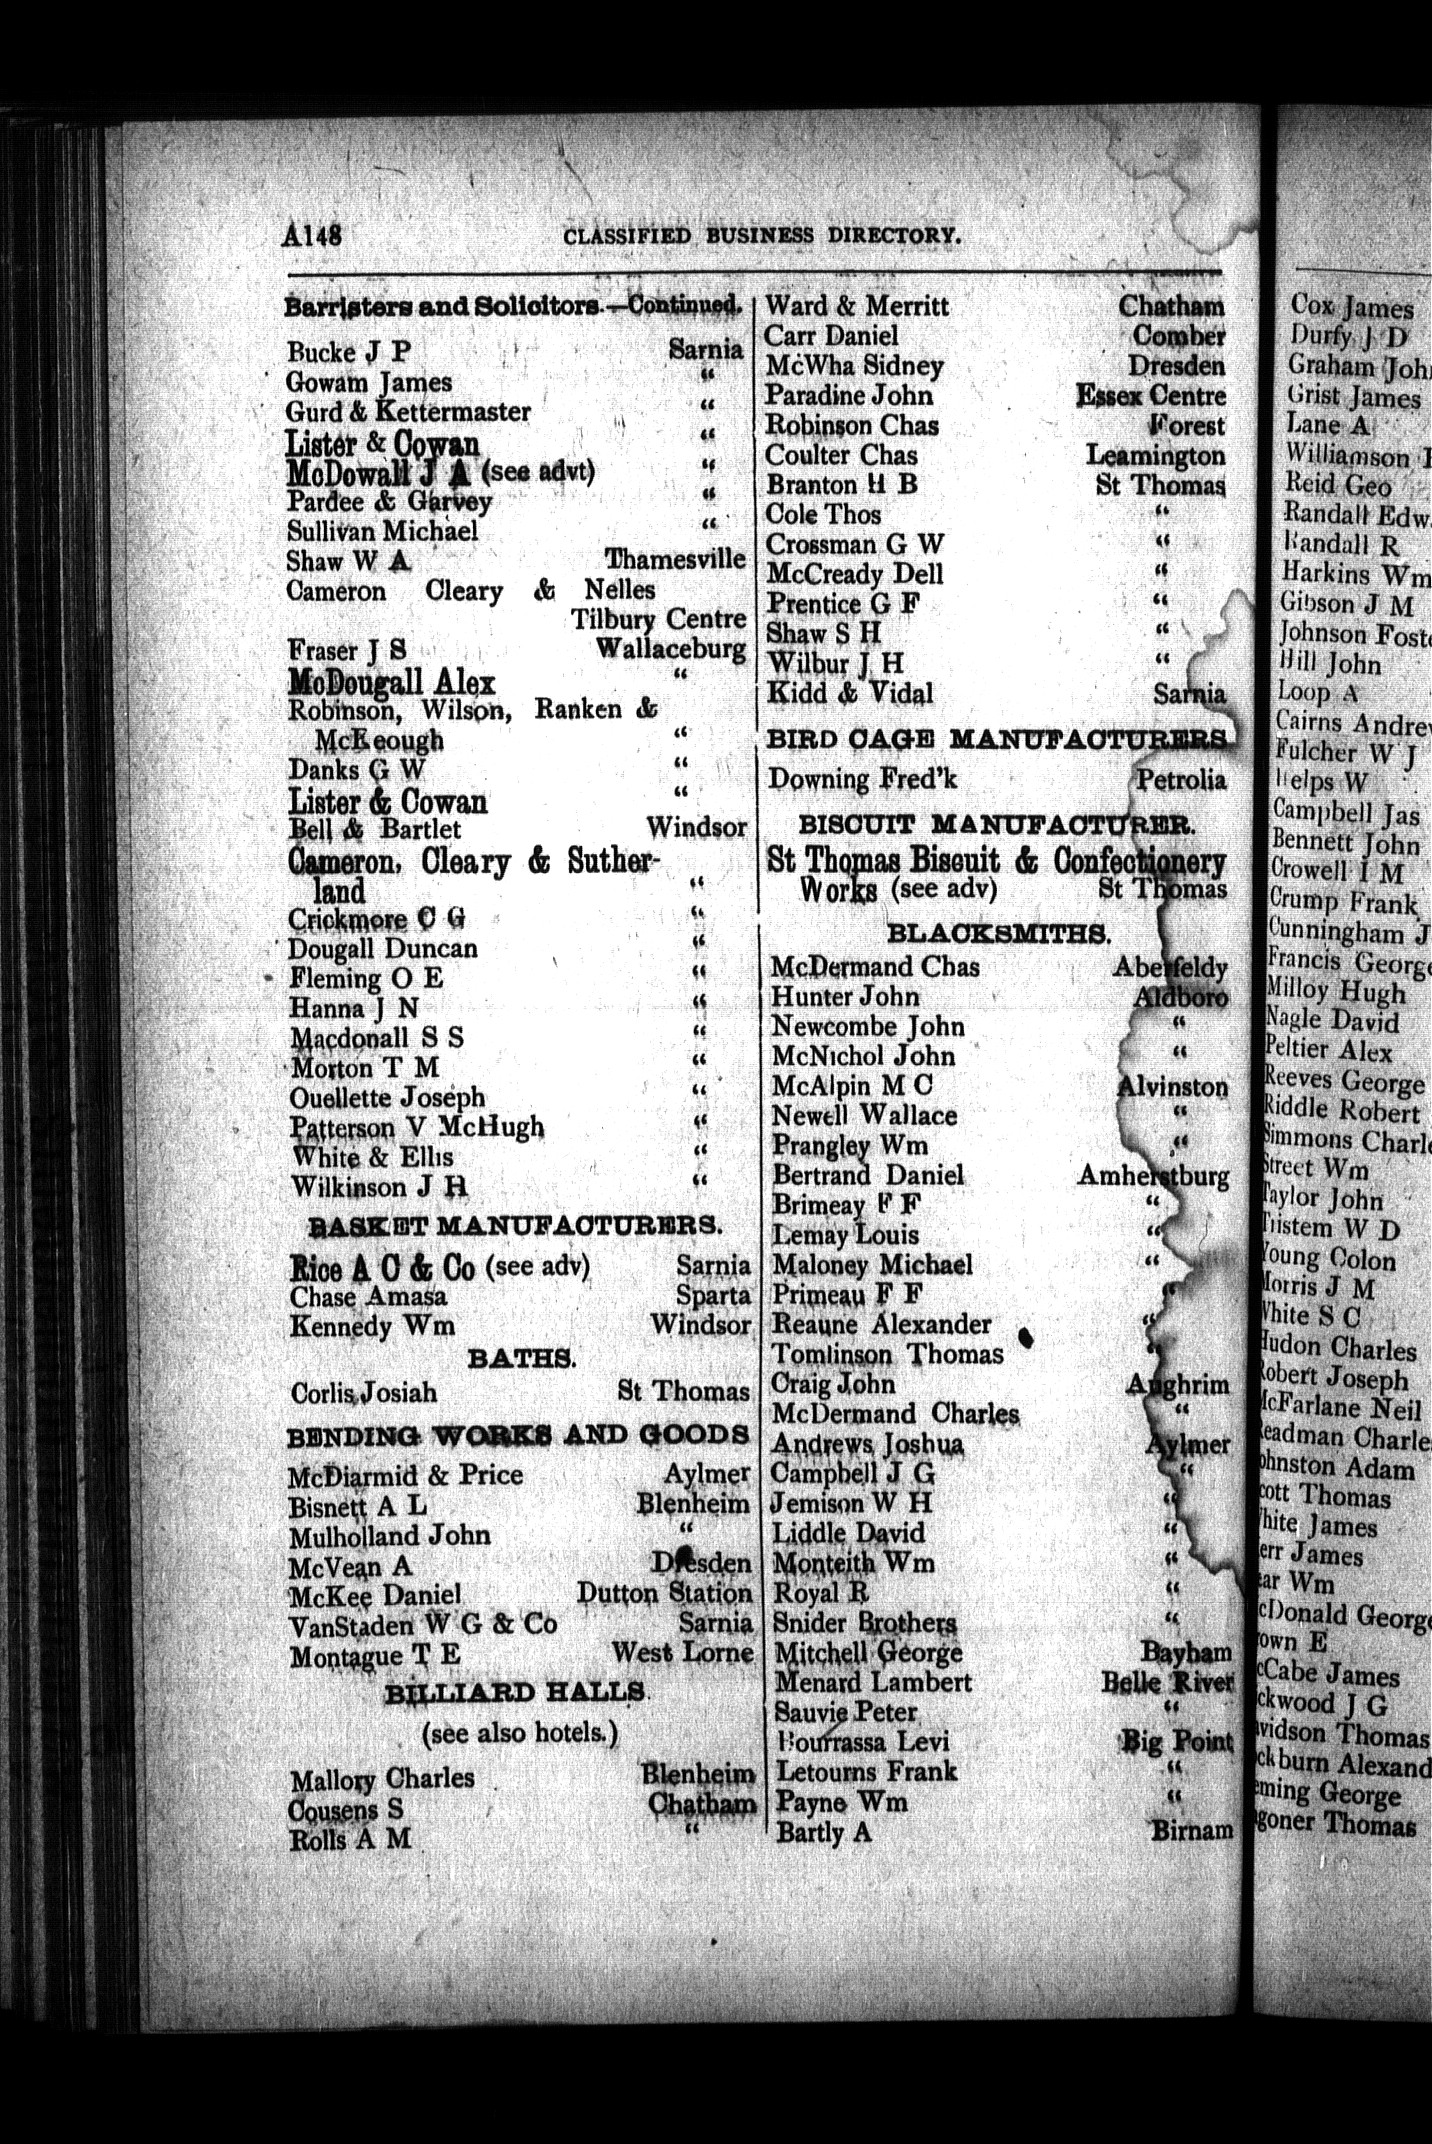 A148
CLASSIFIED BUSINESS DIRECTORY.
Barristers and Solicitors.—Continued.
Bucke J P Sarnia
Gowam James “
Gurd & Kettermaster “
Lister & Cowan “
McDowall J A (see advt) “
Pardee & Garvey “
Sullivan Michael “
Shaw W A Thamesville
Cameron Cleary & Nelles
Tilbury Centre
Fraser J S Wallaceburg
McDougall Alex “
Robinson, Wilson, Ranken &
McKeough “
Danks G W “
Lister & Cowan “
Bell & Bartlet Windsor
Cameron, Cleary & Suther-
land “
Crickmore C G “
Dougall Duncan “
Fleming O E “
Hanna J N “
Macdonall S S “
Morton T M “
Ouellette Joseph “
Patterson V McHugh “
White & Ellis “
Wilkinson J H “
BASKET MANUFACTURERS.
Rice A C & Co (see adv) Sarnia
Chase Amasa Sparta
Kennedy Wm Windsor
BATHS.
Corlis Josiah St Thomas
BENDING WORKS AND GOODS
McDiarmid & Price Aylmer
Bisnett A L Blenheim
Mulholland John “
McVean A Dresden
McKee Daniel Dutton Station
VanStaden W G & Co Sarnia
Montague T E West Lorne
BILLIARD HALLS.
(see also hotels.)
Mallory Charles Blenheim
Cousens S Chatham
Rolls A M “
Ward & Merritt Chatham
Carr Daniel Comber
McWha Sidney Dresden
Paradine John Essex Centre
Robinson Chas Forest
Coulter Chas Leamington
Branton H B St Thomas
Cole Thos “
Crossman G W “
McCready Dell “
Prentice G F “
Shaw S H “
Wilbur J H “
Kidd & Vidal Sarnia
BIRD CAGE MANUFACTURERS
Downing Fred'k Petrolia
BISCUIT MANUFACTURER.
St Thomas Biscuit & Confectionery
Works (see adv) St Thomas
BLACKSMITHS.
McDermand Chas Aberfeldy
Hunter John Aldboro
Newcombe John “
McNichol John “
McAlpin M C Alvinston
Newell Wallace “
Prangley Wm “
Bertrand Daniel Amherstburg
Brimeay F F “
Lemay Louis “
Maloney Michael “
Primeau F F “
Reaune Alexander “
Tomlinson Thomas “
Craig John Aughrim
McDermand Charles “
Andrews Joshua Aylmer
Campbell J G “
Jemison W H “
Liddle David “
Monteith Wm “
Royal R “
Snider Brothers “
Mitchell George Bayham
Menard Lambert Belle River
Sauvie Peter “
Bourrassa Levi Big Point
Letourns Frank “
Payne Wm “
Bartly A Birnam
Cox James
Durfy J D
Graham
Grist James
Lane A
Williamson
Reid Geo
Randall Edw
Randall R
Harkins Wm
Gibson J M
Johnson
Hill John
Loop A
Cairns
Fulcher W J
Helps W
Campbell Jas
Bennett John
Crowell I M
Crump Frank
Cunningham J
Francis
Milloy Hugh
Nagle David
Peltier Alex
Reeves George
Riddle Robert
Simmons
Street Wm
Taylor John
Tristem W D
Young Colon
Morris J M
White S C
Hudon Charles
Robert Joseph
McFarlane Neil
Adam
Thomas
James
James
Wm
E
James
J G
Thomas
George
Thomas